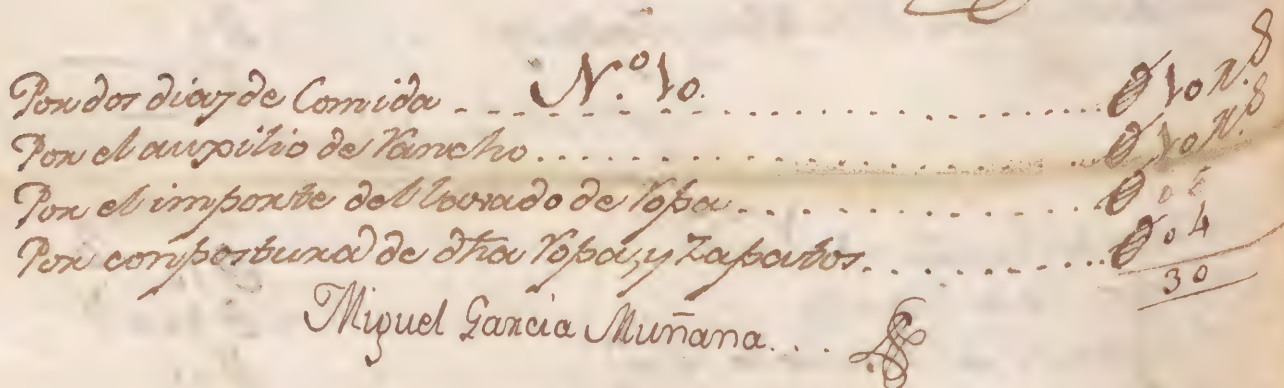 N.º 10.
Por dos dias de Comida - - . . . . . . . . . . . . . . . . 10 r.s
Por el auxpilio de rancho . . . . . . . . . . . . . . . . 10 r.s
Por el importe del lavado de ropa . . . . . . . . . . . . 0
Por compostura de dha ropa, y Zapatos . . . . . . . . 04
30
Miguel Garcia Muñana . . .